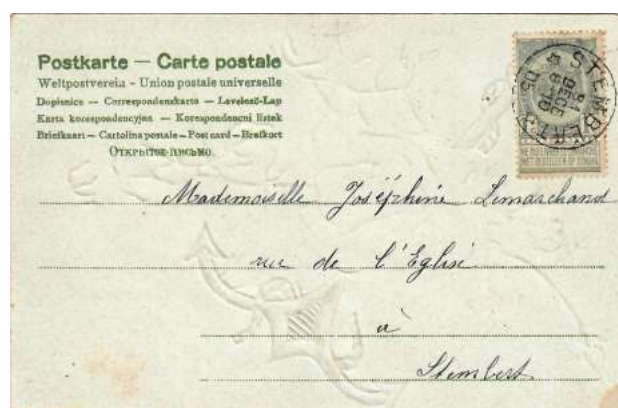 Postkarte — Carte postale
Weltpostverein - Union postale universelle
Dopisnice — Correspondenzkarte — Levelező-Lap
Karta korespondencyjna — Korespondencni listek
Briefkaart — Cartolina postale — Post card — Brefkort
Открытое письмо.
STEMBERT
31
DECE
05
NE PAS LIVRER LE DIMANCHE
NIET BESTELLEN OP ZONDAG
Mademoiselle Joséphine Lemarchand
rue de l'Eglise
à
Stembert